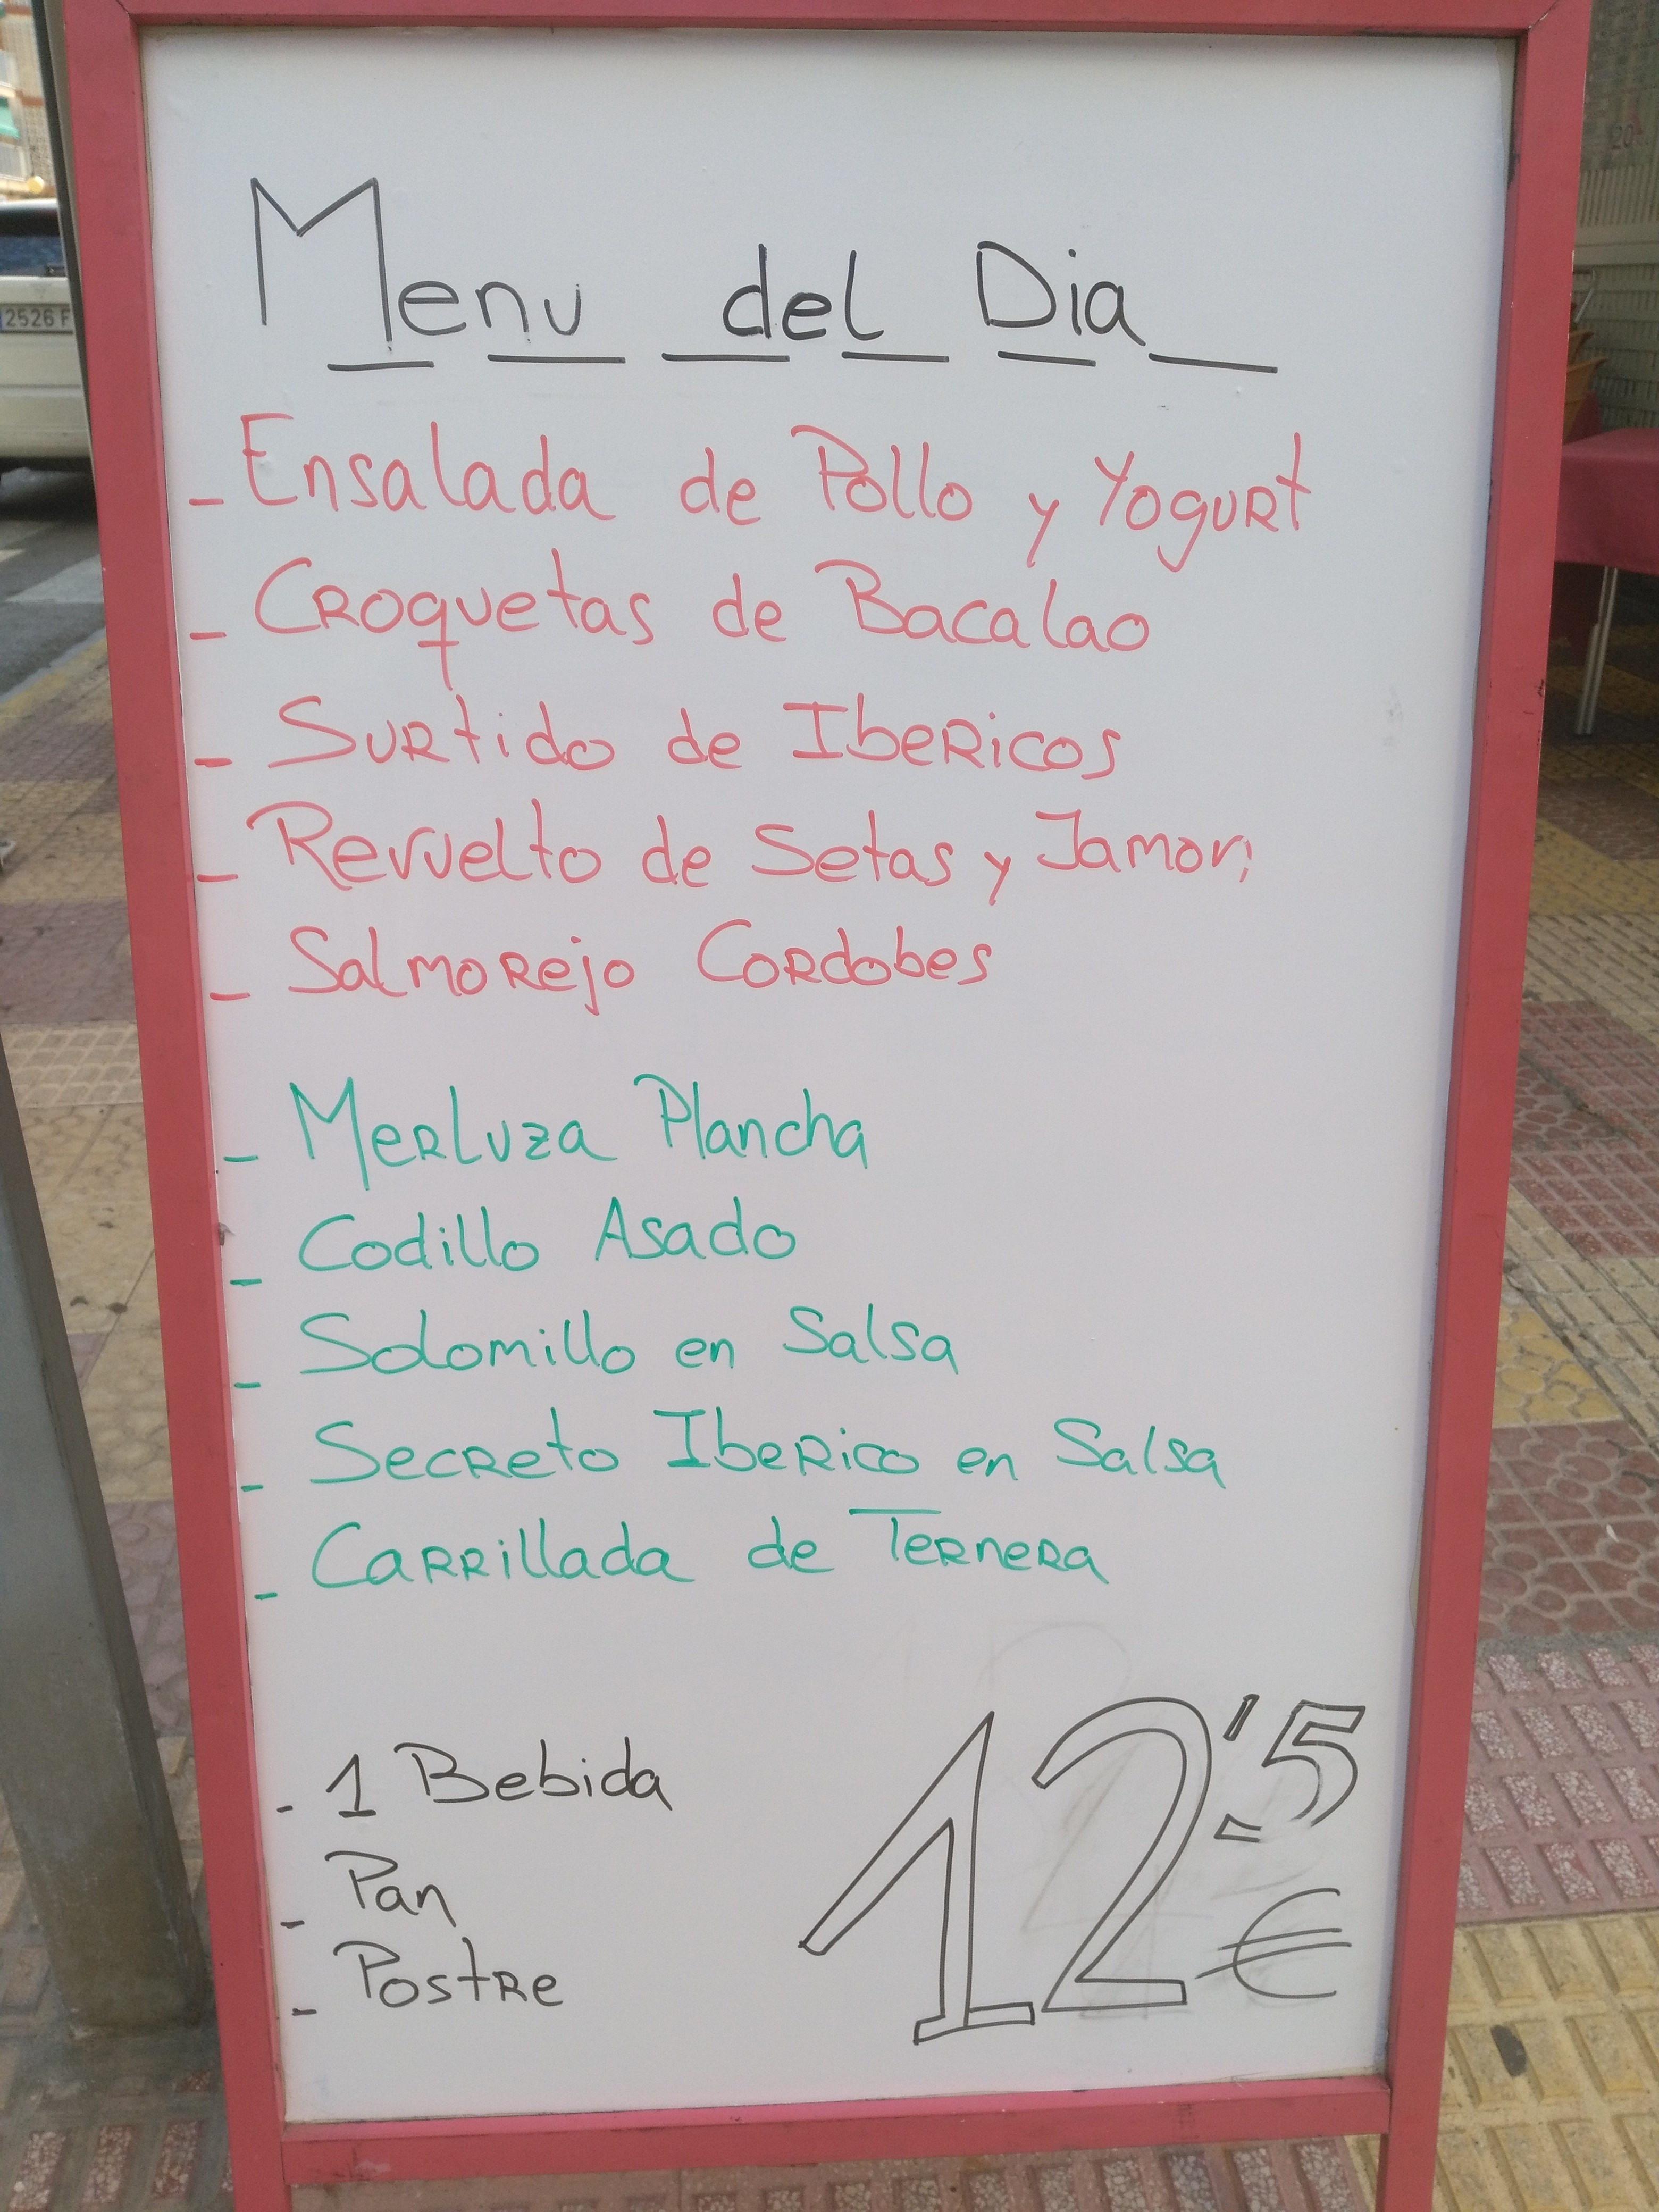 Menu del Dia
- Ensalada de Pollo y Yogurt
- Croquetas de Bacalao
- Surtido de Ibericos
- Revuelto de Setas y Jamon
- Salmorejo Cordobes
- Merluza Plancha
- Codillo Asado
- Solomillo en Salsa
- Secreto Iberico en Salsa
- Carrillada de Ternera
- 1 Bebida
- Pan
- Postre
12'5 €
2526 F